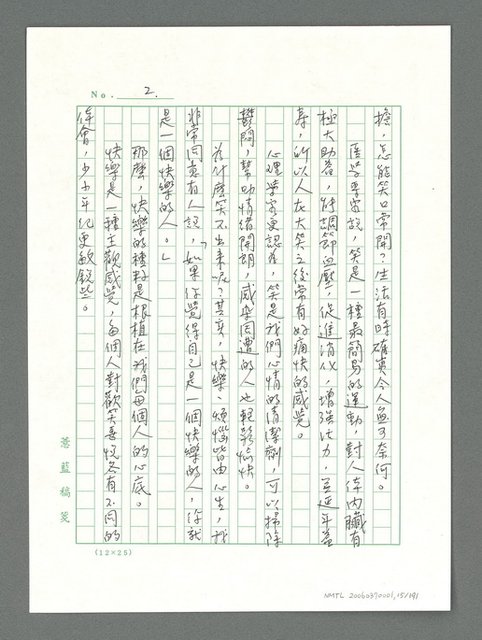 No. 2.
擔，怎能笑口常開？生活有時確真令人無可奈何。
醫學專家說，笑是一種最簡易的運動，對人体內臟有
極大助益，能調節血壓，促進消化，增強活力，至延年益
壽，所以人在大笑之後常有好痛快的感覺。
心理學家更認為，笑是我們心情的清潔劑，可以掃除
鬱悶，幫助情緒開朗，感染周遭的人也輕鬆愉快。
為什麼笑不出來呢？其實，快樂、煩惱皆由心生，我
非常同意有人說，「如果你覺得自己是一個快樂的人，你就
是一個快樂的人。」
那麼，快樂的種籽是根植在我們每個人的心底。
快樂是一種主觀感覺，每個人對歡笑喜悅各有不同的
体會，少小年紀更敏銳些。
薏藍稿箋
(12×25)
NMTL 20060370001, 15/191